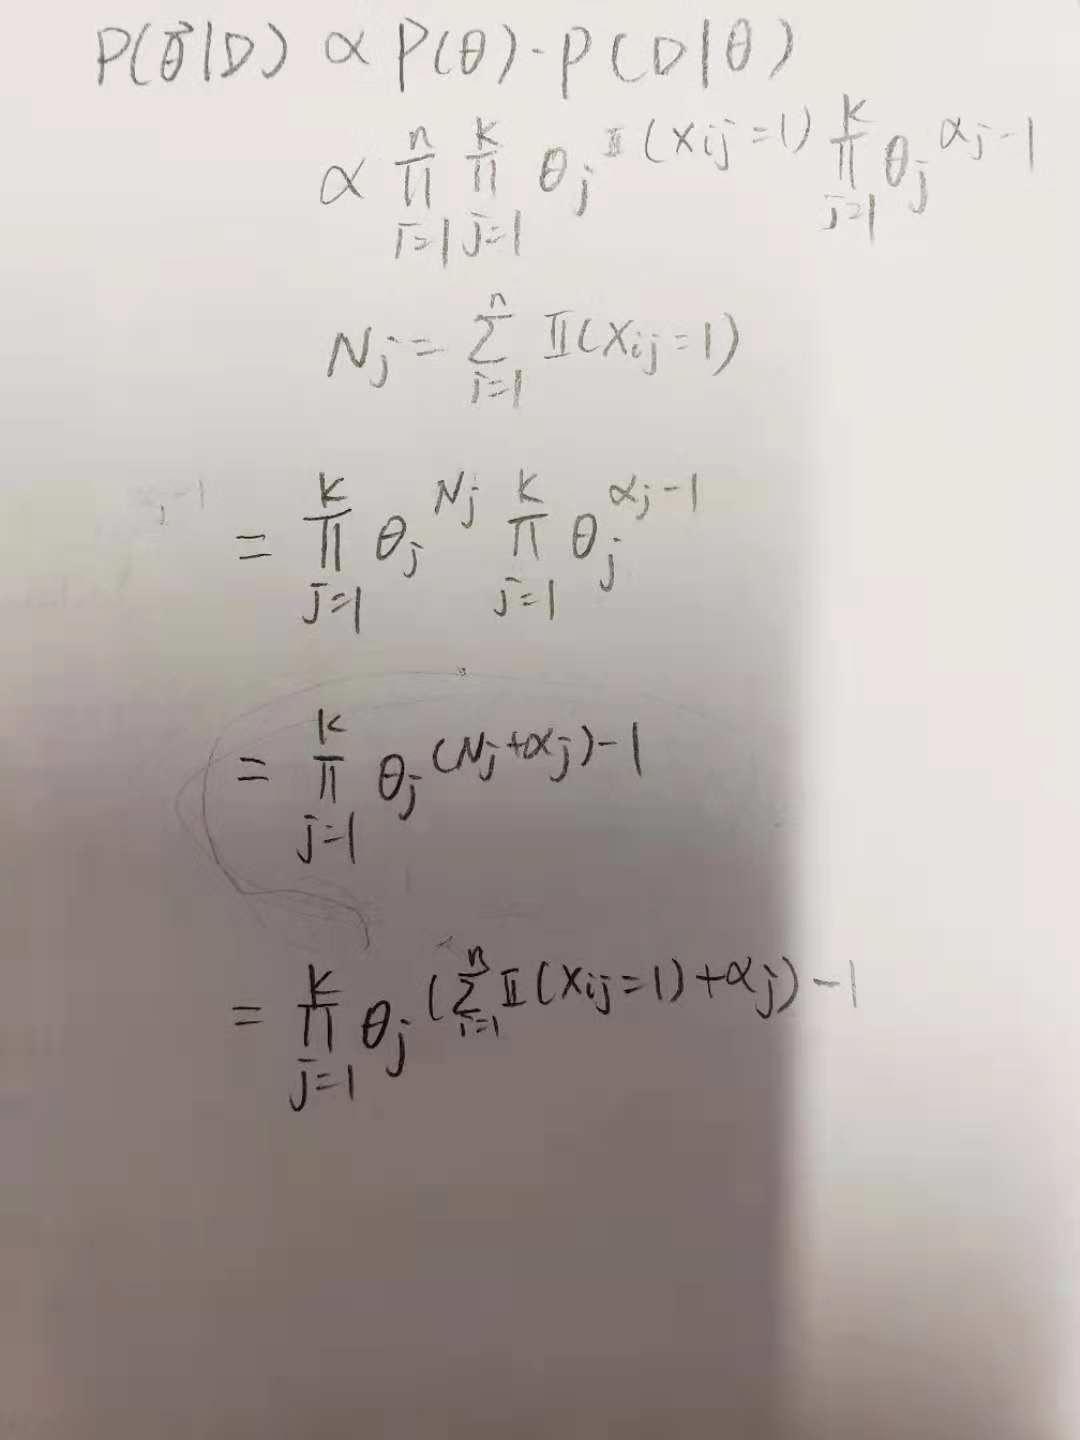 P(θ⃗|D) ∝ P(θ)·P(D|θ)
∝ ∏_{i=1}^{n} ∏_{j=1}^{K} θ_j^{𝕀(x_{ij}=1)} ∏_{j=1}^{K} θ_j^{α_j-1}
N_j = ∑_{i=1}^{n} 𝕀(x_{ij}=1)
= ∏_{j=1}^{K} θ_j^{N_j} ∏_{j=1}^{K} θ_j^{α_j-1}
= ∏_{j=1}^{K} θ_j^{(N_j+α_j)-1}
= ∏_{j=1}^{K} θ_j^{(∑_{i=1}^{n} 𝕀(x_{ij}=1)+α_j)-1}